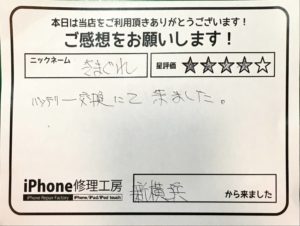 本日は当店をご利用頂きありがとうございます！
ご感想をお願いします！
ニックネーム きまぐれ 星評価 ★★★★☆
バッテリー交換にて来ました。
iPhone修理工房
iPhone Repair Factory iPhone/iPad/iPod touch
新横浜 から来ました